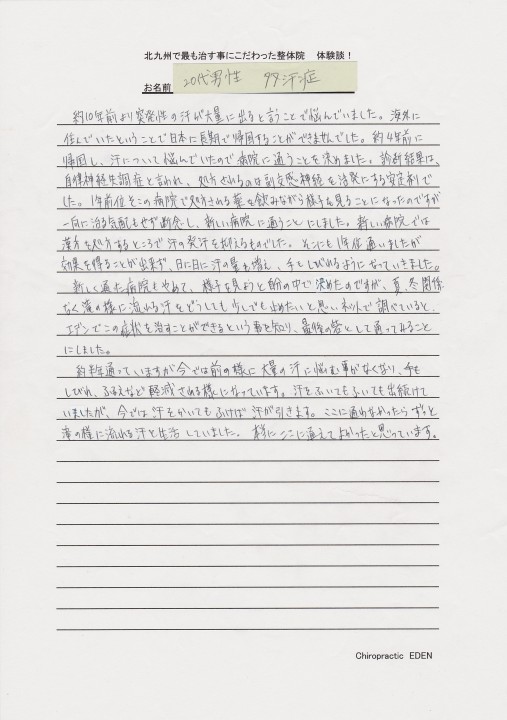 北九州で最も治す事にこだわった整体院　体験談！
お名前　20代男性　多汗症
約10年前より突発性の汗が大量に出ると言うことで悩んでいました。海外に
住んでいたということで日本に長期で帰国することができませんでした。約4年前に
帰国し、汗について悩んでいたので病院に通うことを決めました。診断結果は、
自律神経失調症と言われ、処方されるのは副交感神経を活発にする安定剤で
した。1年前位その病院で処方される薬を飲みながら様子を見ることになったのですが
一向に治る気配もせず断念し、新しい病院に通うことにしました。新しい病院では
漢方を処方するところで汗の発汗を抑えるものでした。そこにも1年位通いましたが
効果を得ることが出来ず、日に日に汗の量も増え、手もしびれるようになっていきました。
新しく通った病院もやめて、様子を見ようと自分の中で決めたのですが、夏、冬関係
なく滝の様に流れる汗をどうしても少しでも止めたいと思いネットで調べていると、
エデンでこの症状を治すことができるという事を知り、最後の砦として通ってみること
にしました。
約半年通っていますが今では前の様に大量の汗に悩む事がなくなり、手も
しびれ、ふるえなど軽減される様になっています。汗をふいてもふいても出続けて
いましたが、今では汗をかいてもふけば汗が引きます。ここに通わなかったらずっと
滝の様に流れる汗と生活していました。本当にここに通えてよかったと思っています。
Chiropractic EDEN